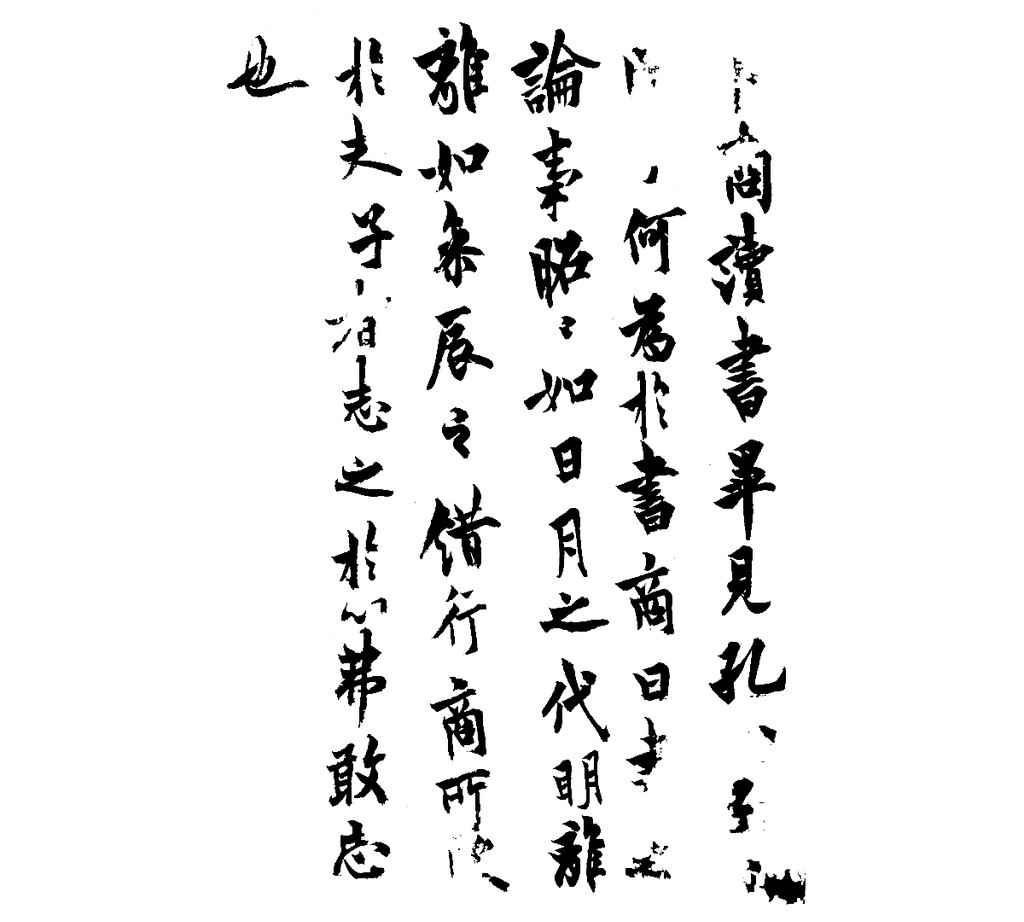 商讀書畢見孔子
何為於書商曰書
論事昭々如日月之代明離
離如參辰之錯行商所
於夫子者志之於心弗敢忘
也